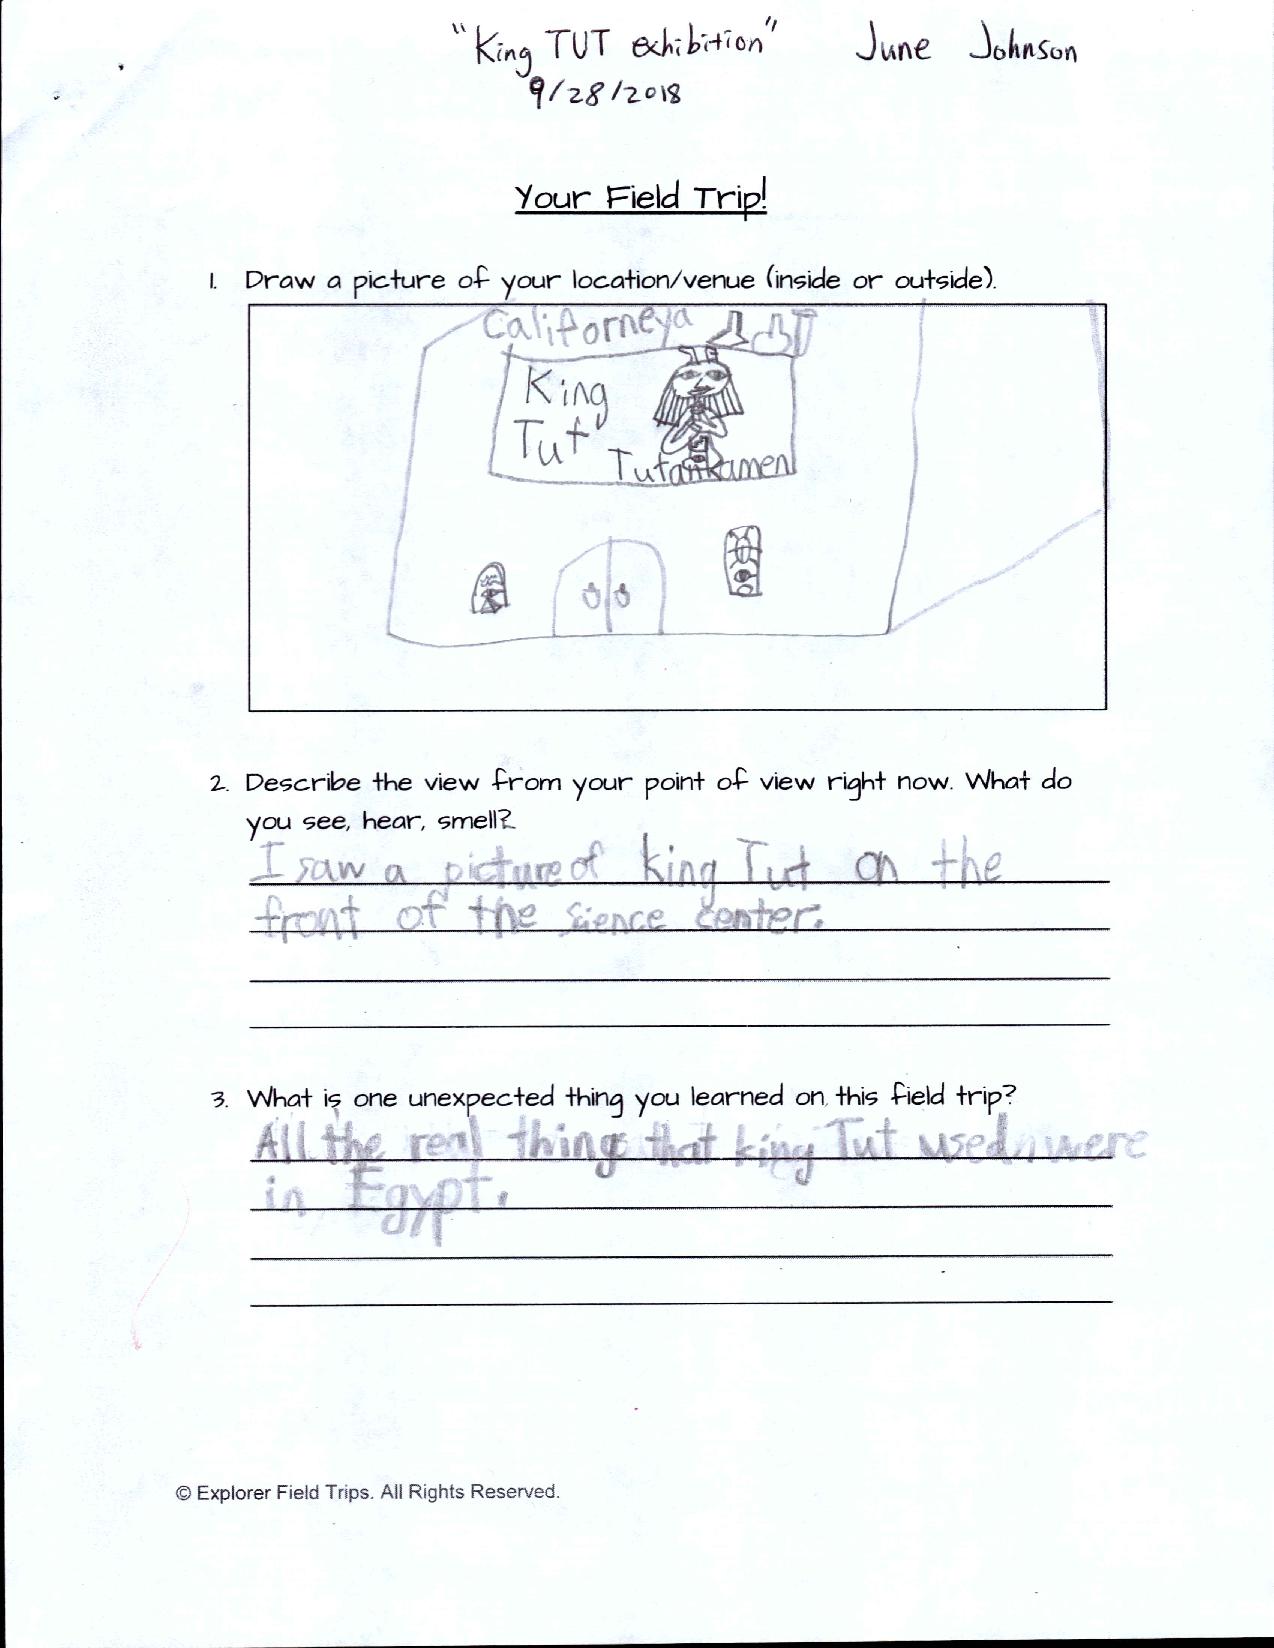 "King TUT exhibition" June Johnson
9/28/2018
Your Field Trip!
1. Draw a picture of your location/venue (inside or outside).
Californeya
King
Tut
Tutankamen
2. Describe the view from your point of view right now. What do
you see, hear, smell?
I saw a picture of king Tut on the
front of the sience center.
3. What is one unexpected thing you learned on this field trip?
All the real things that king Tut used, were
in Egypt.
© Explorer Field Trips. All Rights Reserved.